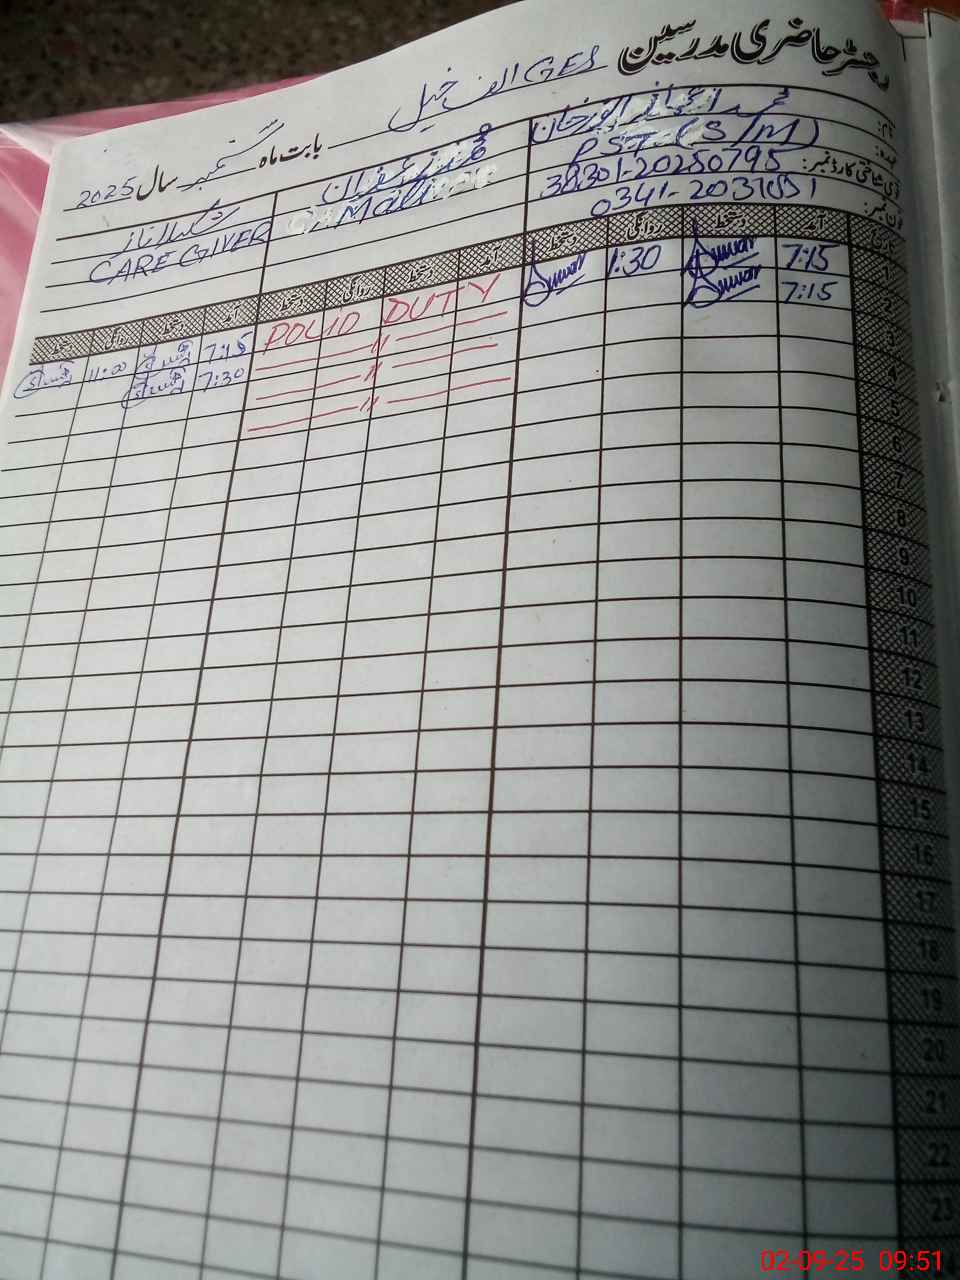 رجسٹر حاضری مدرسین GES الف خیل بابت ماہ ستمبر سال 2025
نام: محمد انور خان
عہدہ: PST (S/M)
قومی شناختی کارڈ نمبر: 38301-20250795
فون نمبر:
CARE GIVER Mali
تاریخ آمد دستخط روانگی دستخط آمد دستخط روانگی دستخط آمد دستخط روانگی دستخط
1 7:15 1:30 POLIO DUTY 7:15 11:00
2 7:15 〃 7:30
3 〃
4 〃
5
6
7
8
9
10
11
12
13
14
15
16
17
18
19
20
21
22
23
02-09-25 09:51